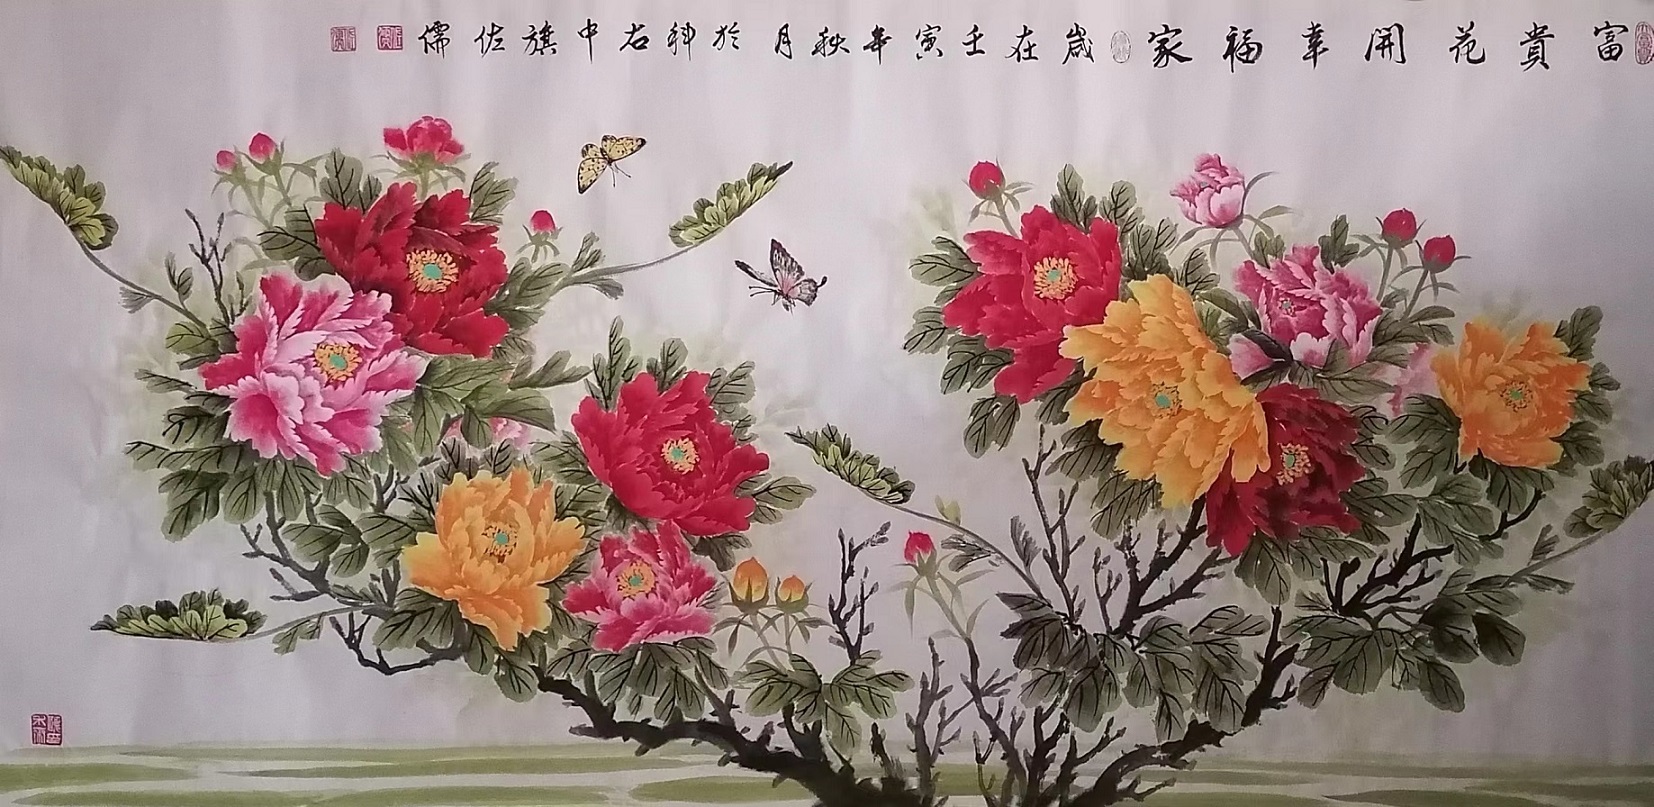 富貴花開幸福家 歲在壬寅年秋月於科右中旗佐儒